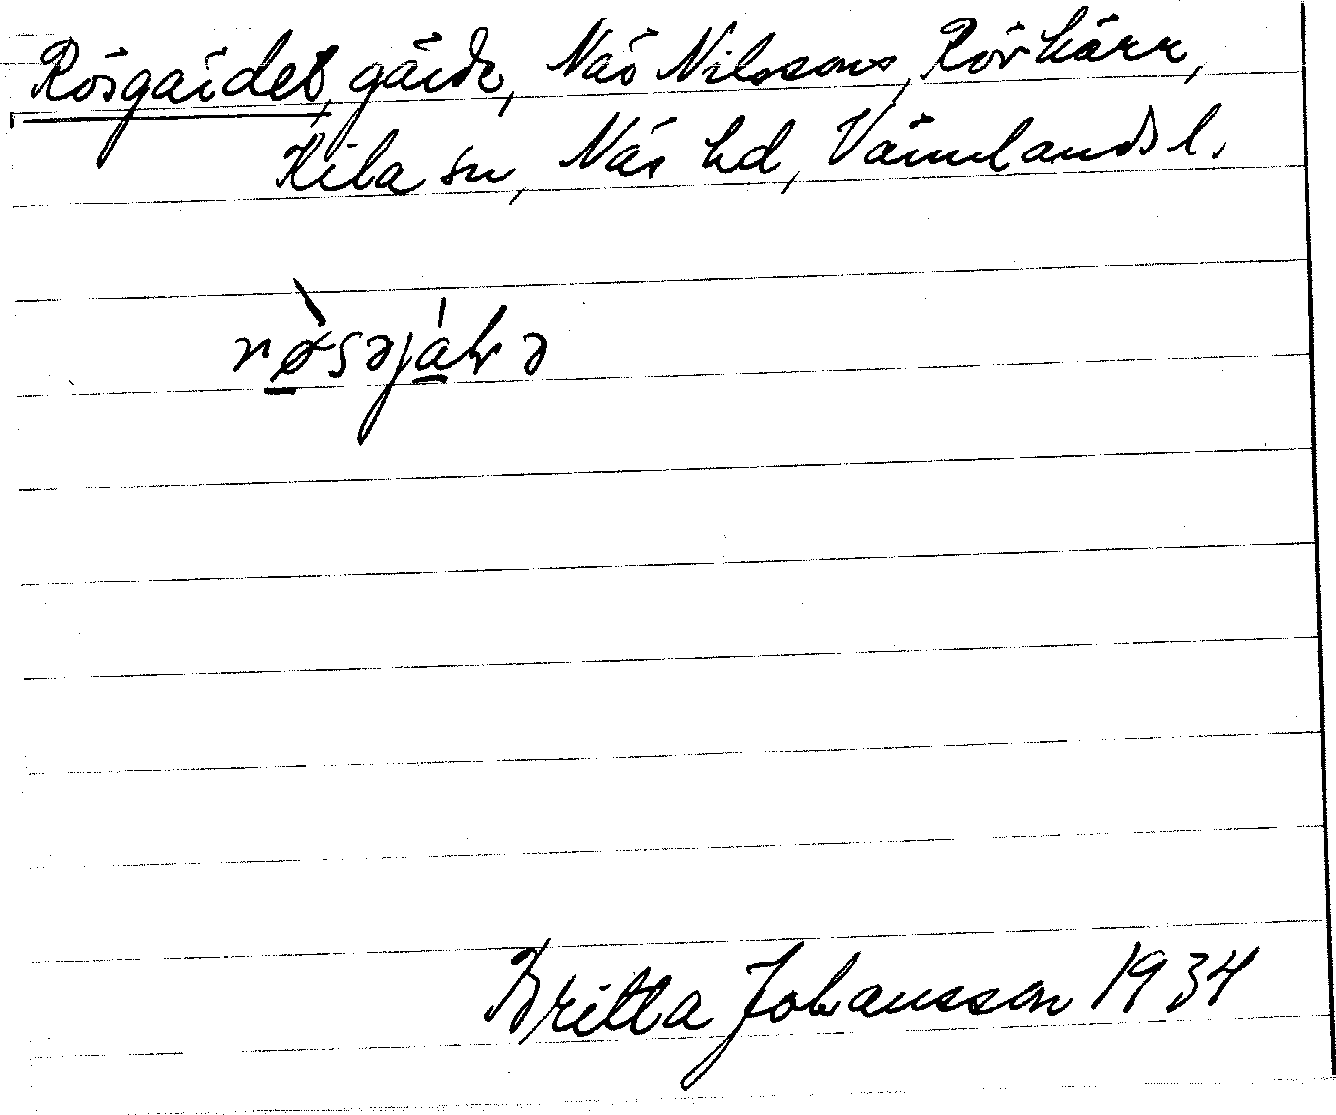 Rösgärdet, gärde, Näs Nilssons, Rörkärr,
Kila sn, Näs hd, Värmlands l.
Britta Johansson 1934